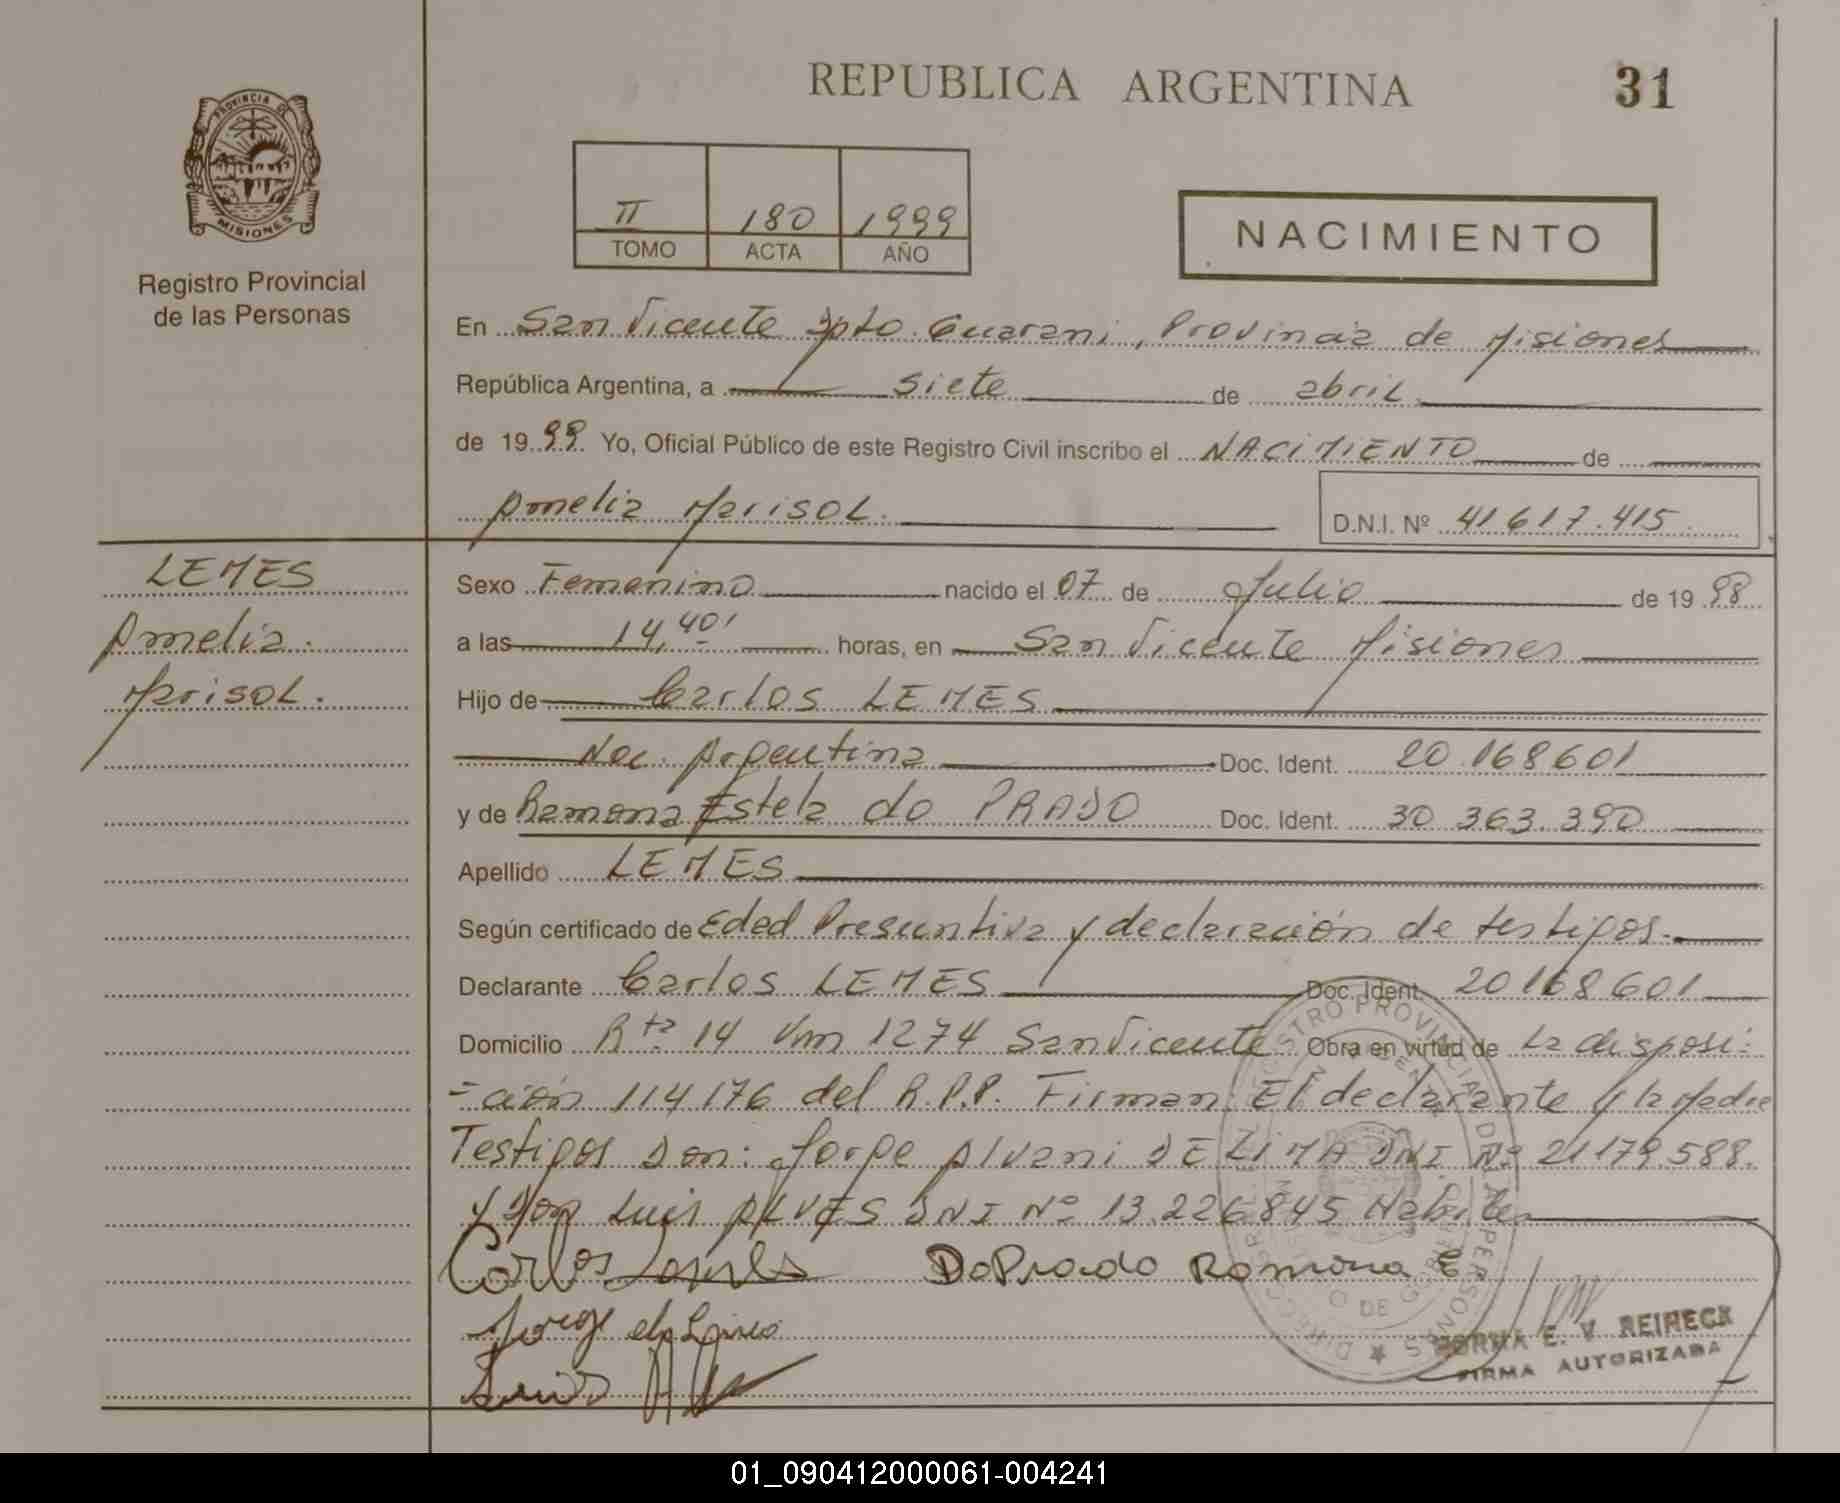 REPUBLICA ARGENTINA
31
PROVINCIA DE
MISIONES
Registro Provincial
de las Personas
II 180 1999
TOMO ACTA AÑO
NACIMIENTO
En San Vicente Dpto. Guarani, Provincia de Misiones
República Argentina, a siete de abril
de 19 99 Yo, Oficial Público de este Registro Civil inscribo el NACIMIENTO de
Amelia Marisol.
D.N.I. Nº 41617.415
LEMES
Amelia.
Marisol.
Sexo Femenino nacido el 07 de Julio de 19 98
a las 14,40' horas, en San Vicente Misiones
Hijo de Carlos LEMES
Nac. Argentina Doc. Ident. 20.168601
y de Ramona Estela do PRADO Doc. Ident. 30 363.390
Apellido LEMES
Según certificado de Edad Presuntiva y declaración de testigos.
Declarante Carlos LEMES Doc. Ident. 20168601
Domicilio Rta 14 Km 1274 San Vicente Obra en virtud de la disposi-
-ción 114176 del R.P.P. Firman: El declarante y la Madre
Testigos Don: Jorge Alvani DE LIMA DNI Nº 21179.588.
y Don Luis ALVES DNI Nº 13.226845 Habiles
Carlos
DoPrado Ramona E
Jorge de Lima
Luis
NORMA E. V. REIRECK
FIRMA AUTORIZADA
01_090412000061-004241